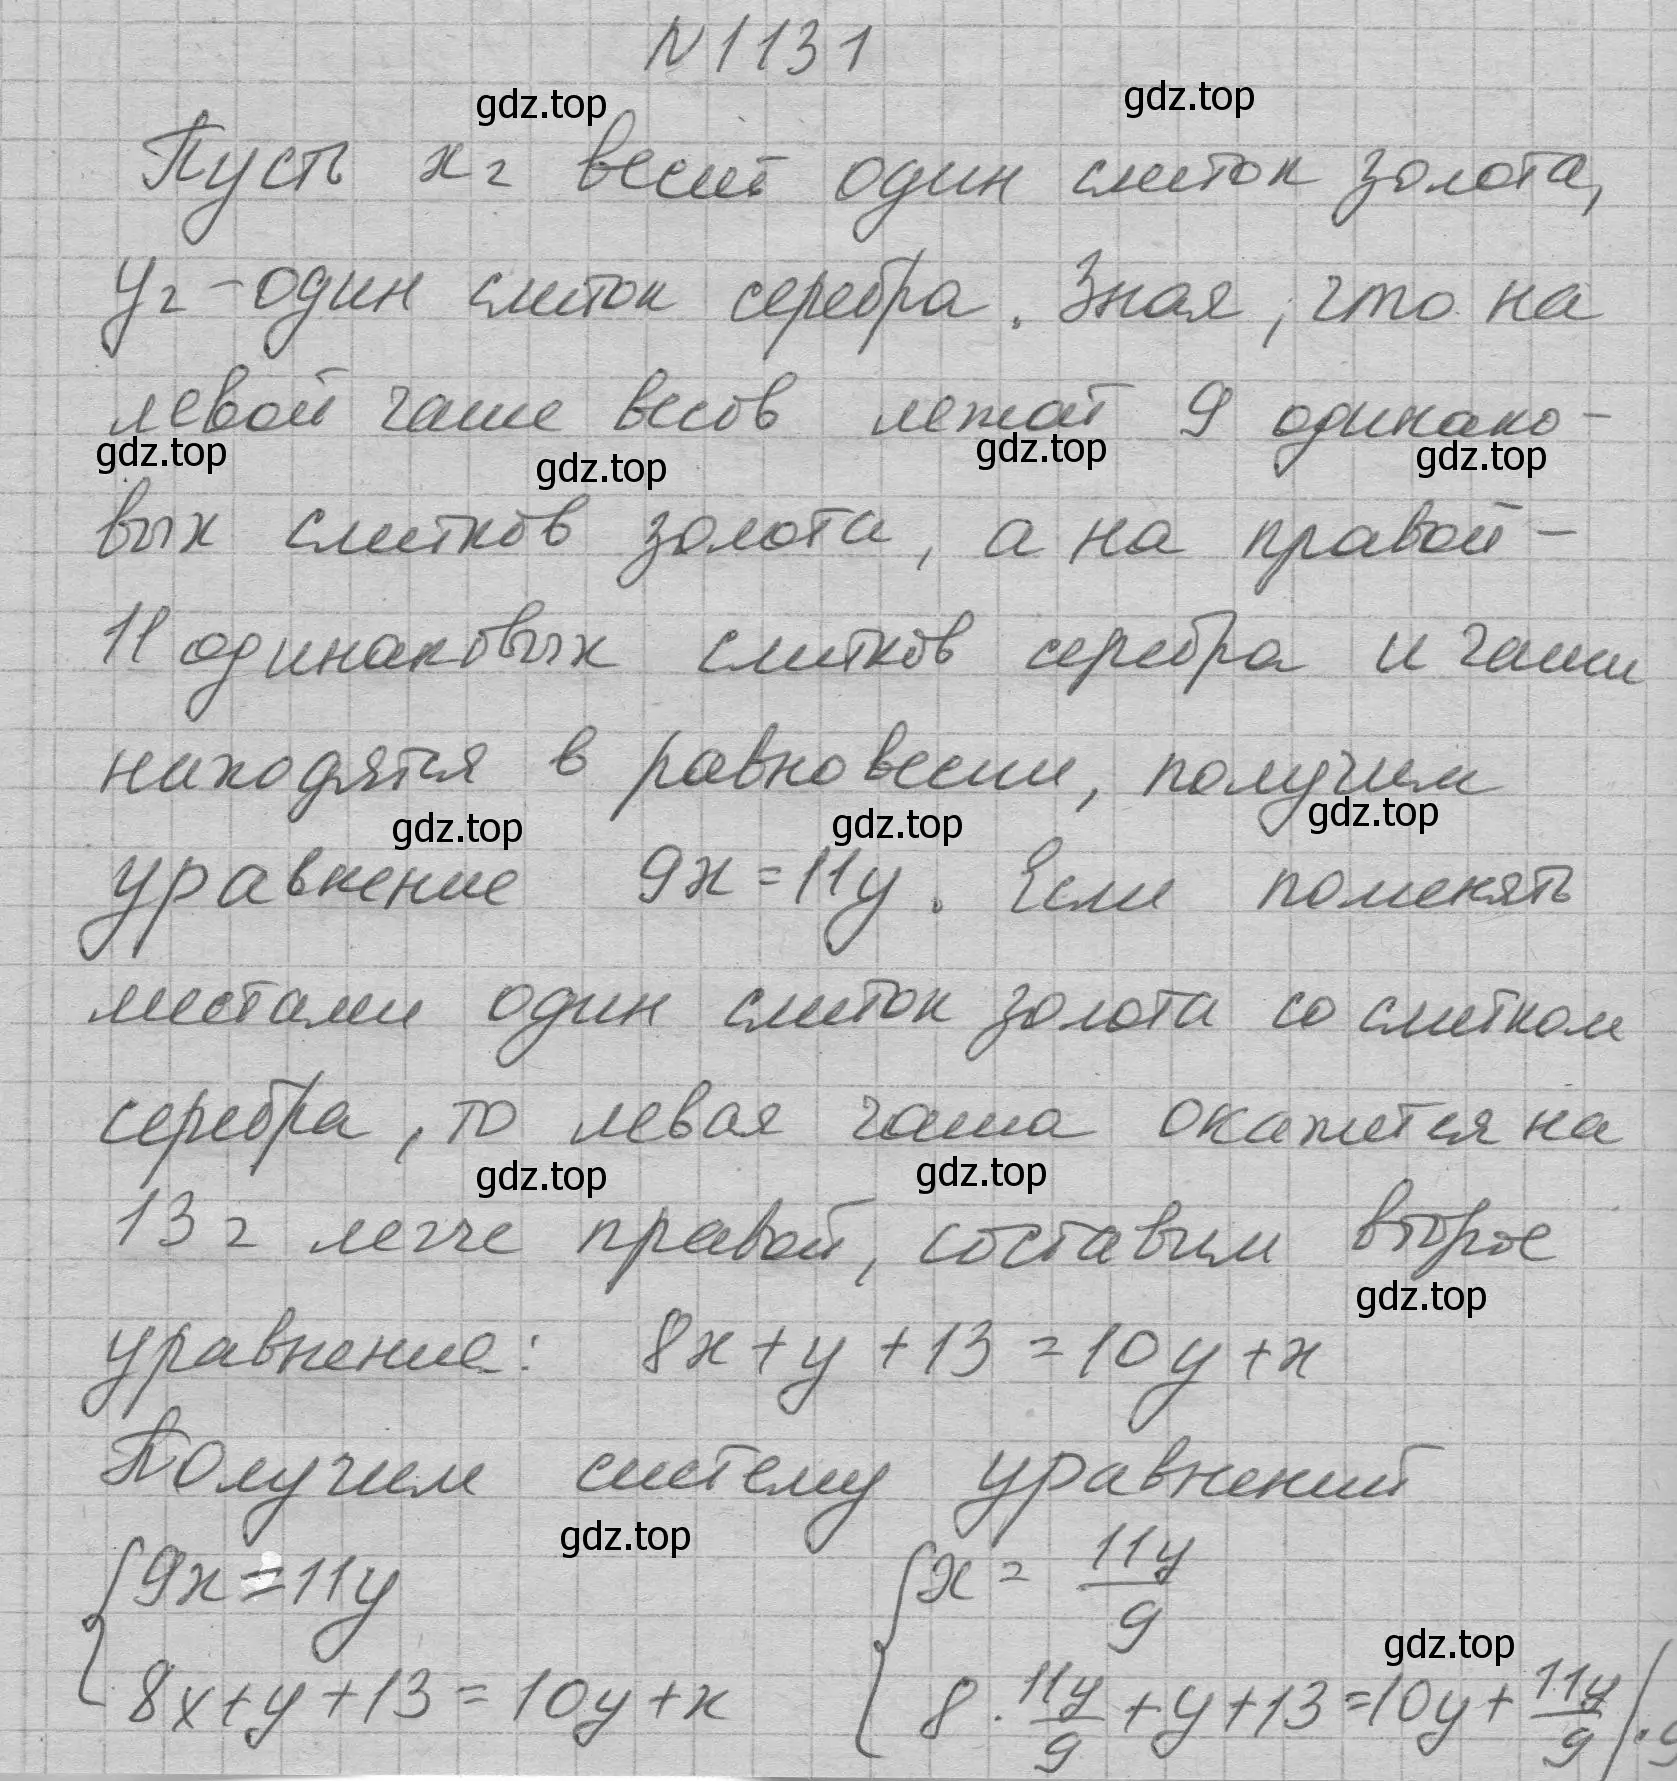 №1131
gdz.top gdz.top
Пусть x г весит один слиток золота,
y г - один слиток серебра. Зная, что на
левой чаше весов лежат 9 одинако-
gdz.top gdz.top gdz.top gdz.top
вых слитков золота, а на правой -
11 одинаковых слитков серебра и чаши
находятся в равновесии, получим
gdz.top gdz.top gdz.top
уравнение 9x=11y. Если поменять
местами один слиток золота со слитком
серебра, то левая чаша окажется на
gdz.top gdz.top
13 г легче правой, составим второе
gdz.top
уравнение: 8x+y+13=10y+x
Получим систему уравнений
gdz.top
{9x=11y {x = 11y/9
gdz.top
8x+y+13=10y+x 8 · 11y/9 +y+13=10y+ 11y/9 |·9